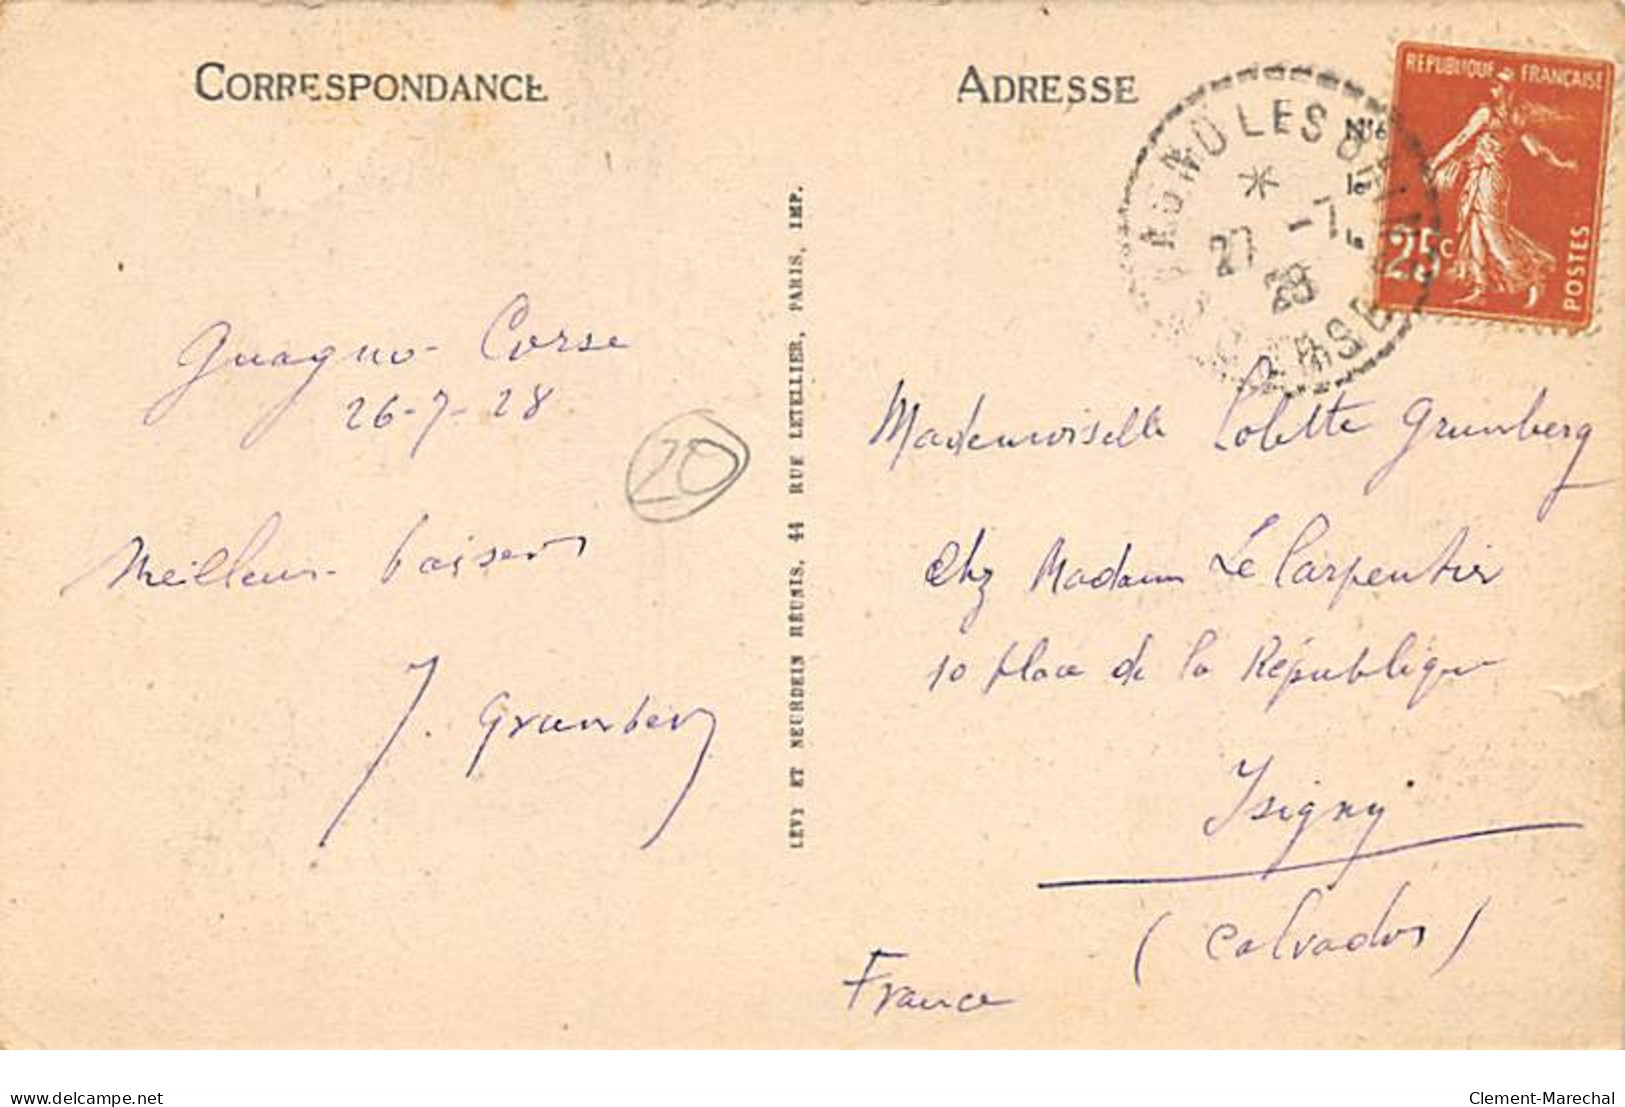 CORRESPONDANCE
Guagno - Corse
26-7-28
20
Meilleurs baisers
J. Grumberg
LÉVY ET NEURDEIN RÉUNIS, 44 RUE LETELLIER, PARIS, IMP.
ADRESSE
LES
27 -7
28
CORSE
REPUBLIQUE FRANÇAISE
25c
POSTES
Mademoiselle Colette Grumberg
chez Madame Le Carpentier
10 place de la République
Isigny
(Calvados)
France
delcampe.net
Clement-Marechal